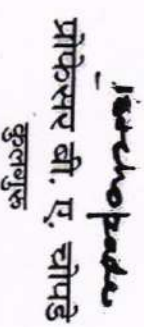 प्रोफेसर बी. ए. चोपडे
कुलगुरु